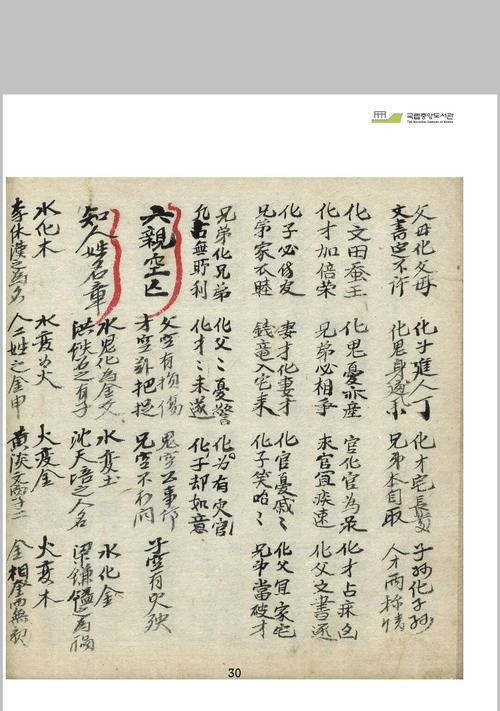 국립중앙도서관
THE NATIONAL LIBRARY OF KOREA
父母化父母 化子進人丁 化才宅長 子孫化子孫
文書也不許 化鬼身 兄弟本自取 人才兩
化文田蚕王 化鬼憂亦産 官化官為 化才占
化才加倍栄 兄弟必相爭 求官宜疾速 化父文書遂
化子必傷友 妻才化妻才 化官憂戚〻 化父宜家宅
兄弟家不睦 錢竜入宅来 化子笑哈〻 兄弟當破才
兄弟化兄弟 化父〻憂驚 化為有灾官
凡占無所利 化才〻未遂 化子却如意
六親空亡
父空有損傷 鬼空公事停 子空有灾殃
才空難把捉 兄空不可問
知人姓名章
水鬼化為金文 水変土 水化金
洪鉄石之有子 沈天浯之人名 梁鎌鎰為禍
水化木 水変火 火変金 火変木
李休漢之為名 人二姓之金申 黄淡文 金相金而無
30